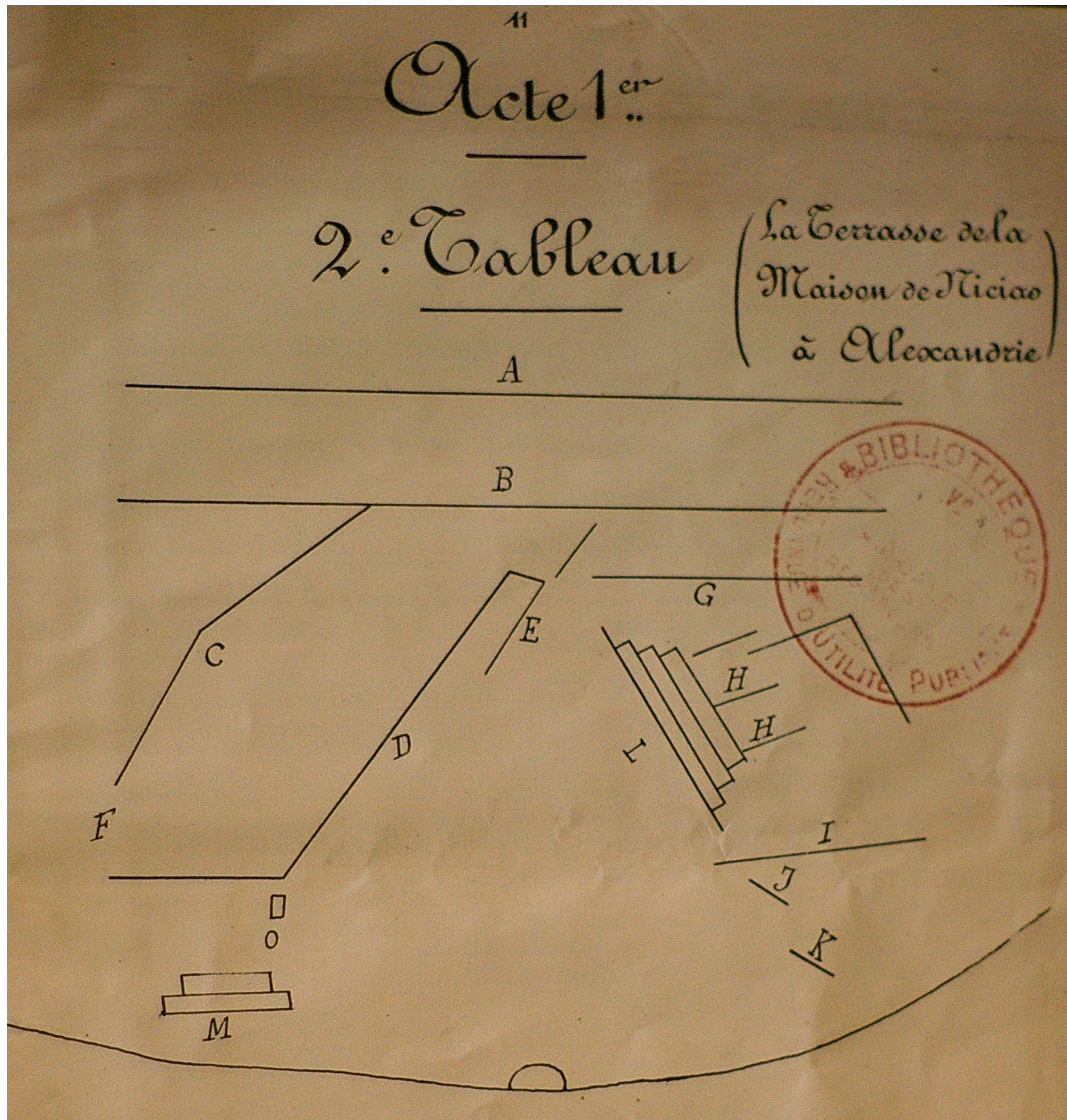 11
Acte 1er
2e. Tableau
(La Terrasse de la
Maison de Nicias
à Alexandrie)
A
B
C
D
E
F
G
H
H
L
I
J
K
O
M
& BIBLIOTHEQUE
D'UTILITE PUBLIQUE